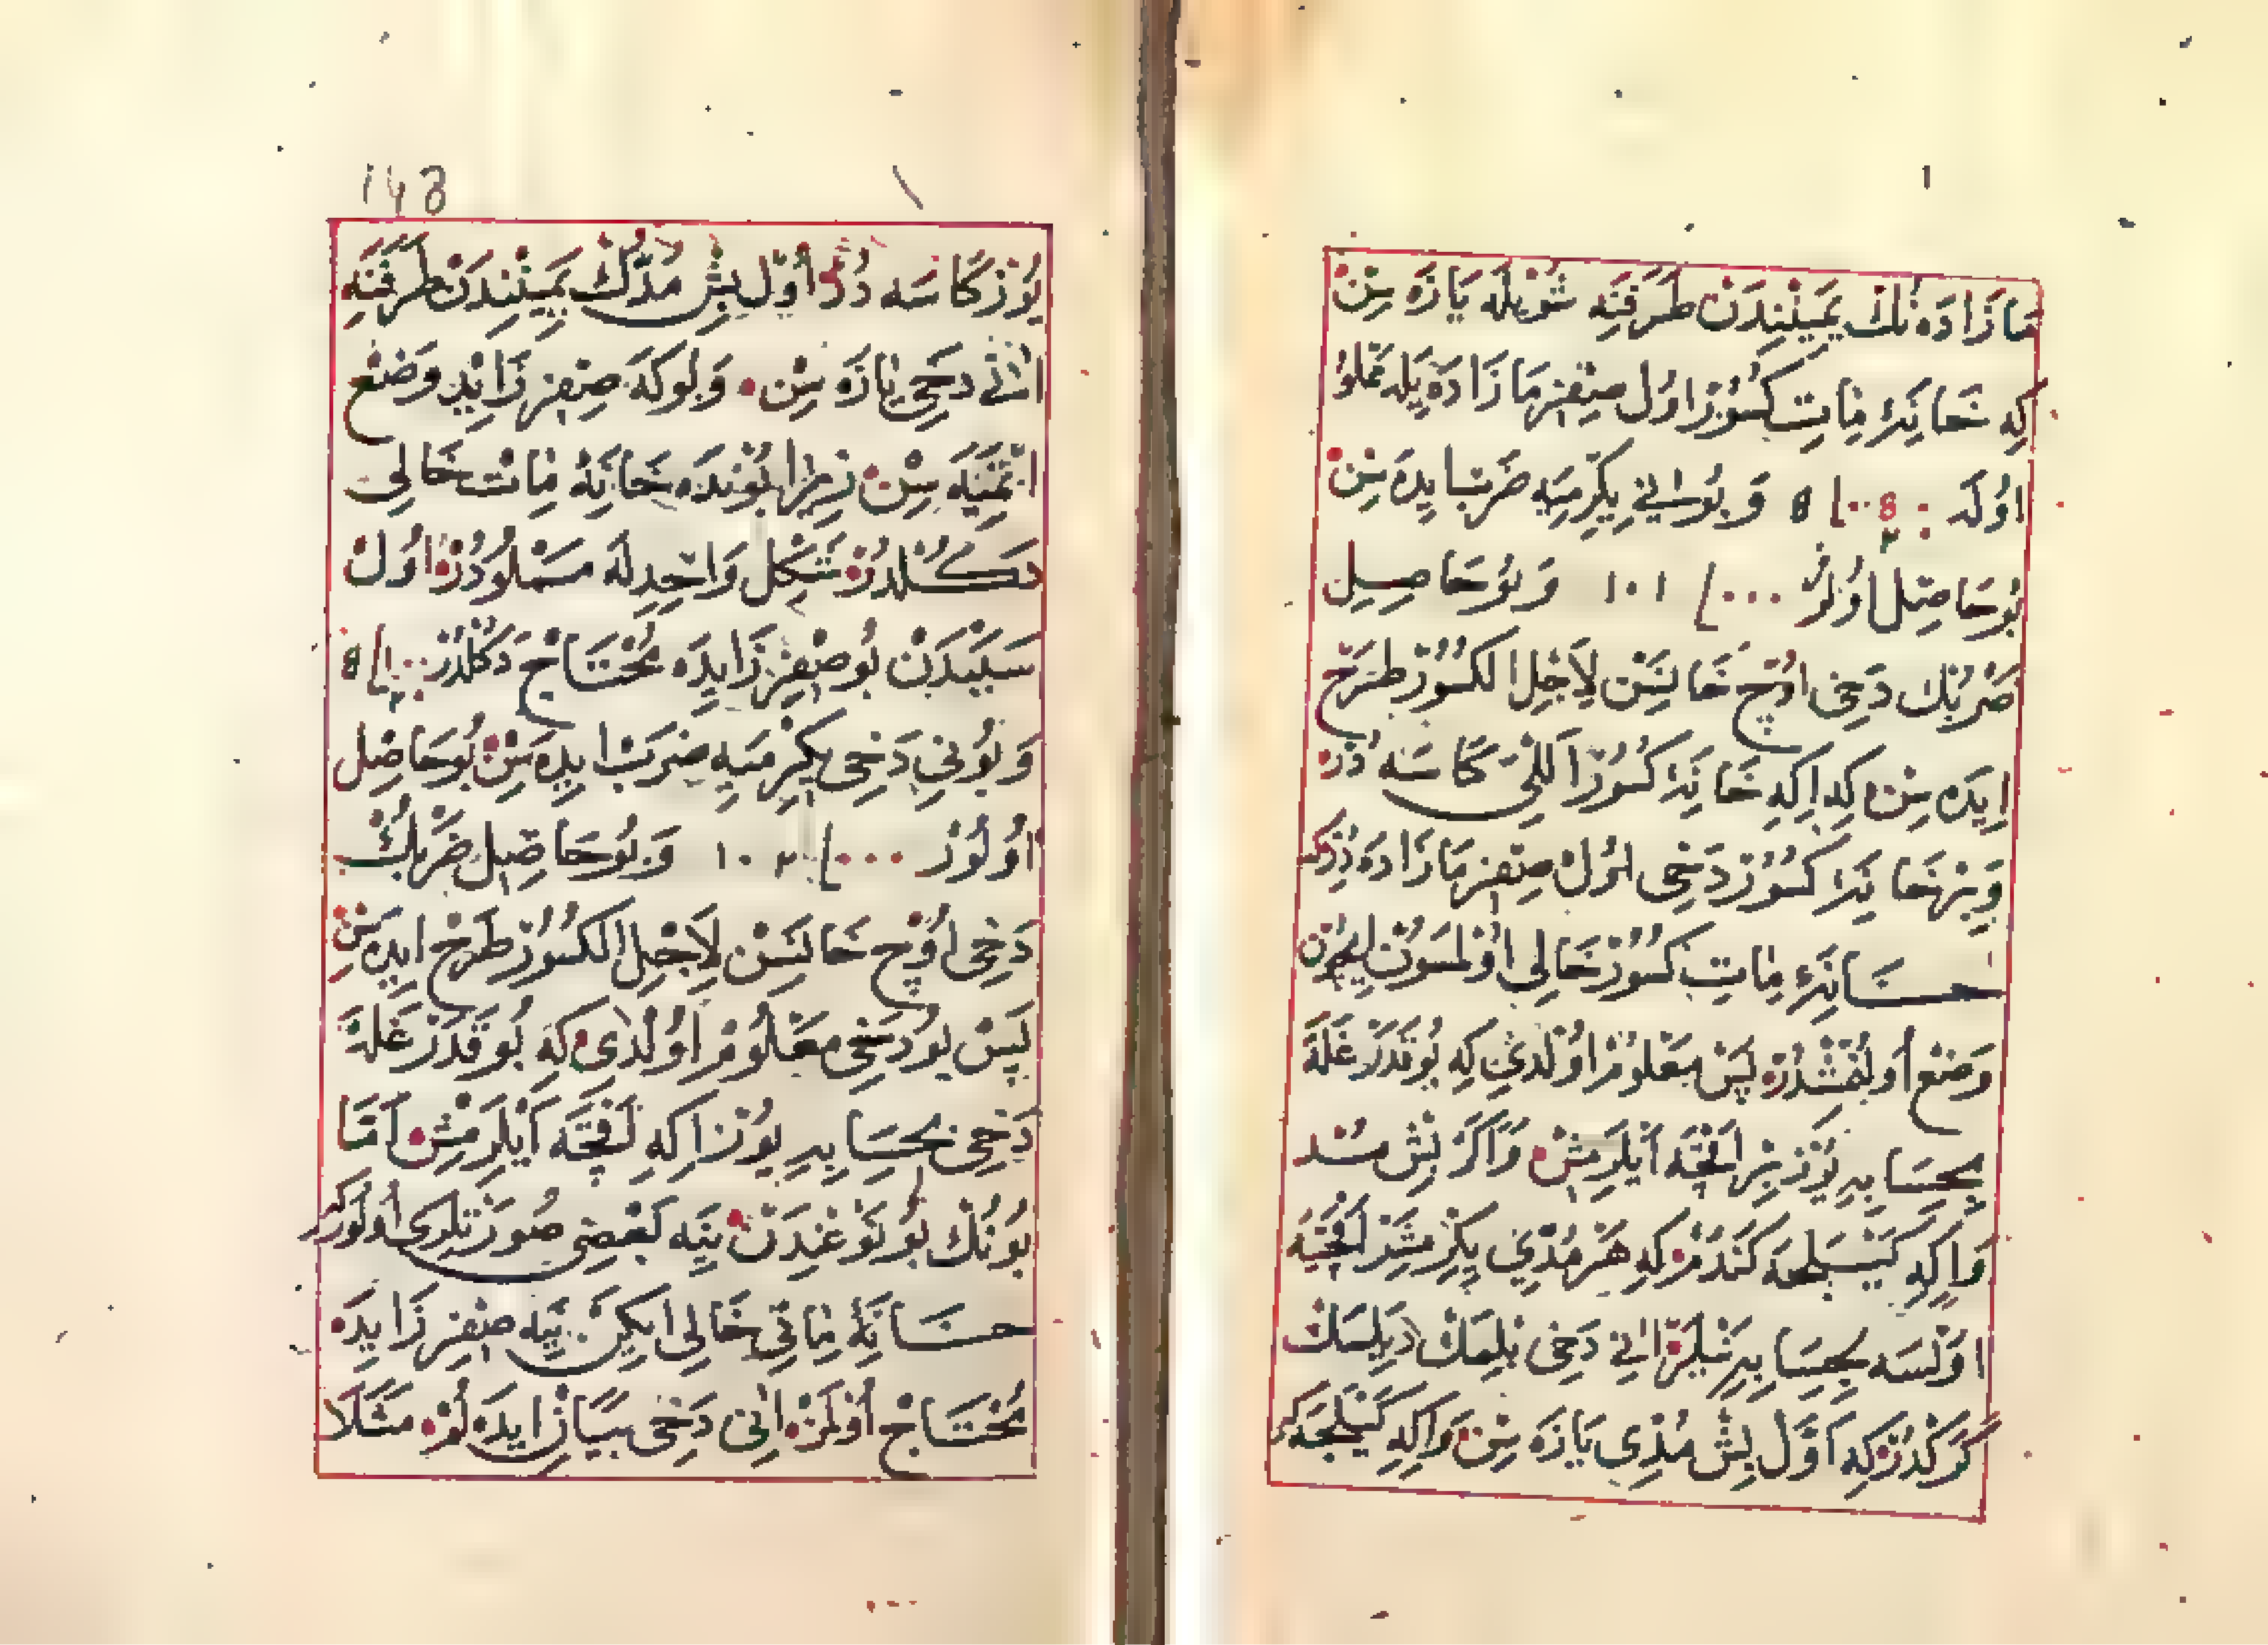 مَا زَادَه نُكْ يَمِينِنْدَنْ طَرَفِنَه شُويْلَه يَازَه سِنْ
كِه خَانَهٔ مِاٰتِ كُسُورْ اوُلْ صِفِرْ مَا زَادَه يِلَه مَمْلُوْ
اوُلَه
وَ بُو اٰنِي يِكِرْمِيَه ضَرْب ايدَه سِنْ
بُو حَاصِلْ اوُلُورْ ٠٠٠ ١٠١ وَ بُو حَاصِلِ
ضَرْبُكْ دَخِى اوُچْ خَانَسِنْ لِاَجْلِ الكُسُورْ طَرْحْ
ايدَه سِنْ كِه اِكِه خَانَهٔ كُسُورْ اَللّٰى كَاسَه دُرْ
وَ بِرْ خَانَهٔ كُسُورْ دَخِى اوُلْ صِفِرْ مَا زَادَه دُرْ كه
خَانَهٔ مِاٰتِ كُسُورْ خَالِى اوُلْمَسُونْ ايچُونْ
وَضْعْ اوُلُنْمِشْدُرْ پَسْ مَعْلُومْ اوُلْدِى كِه بُو قَدَرْ غَلَّهٔ
بِحِسَابِ يُوزْ بِرْ اَقْچَه اَيْلَرْمِشْ وَ اَكَرْ بَشْ مُد
وَ اِكِه كَيْسَلجه كَنْدُمْ كِه هَرْ مُدِّى يِكِرْمِشَرْ اَقْچَيَه
اوُلْسَه بِحِسَابِ نَيْلَرْ اٰنِي دَخِى بِلْمَكْ دِيلَسَكْ
كَرَكْدُرْ كِه اَوَّلْ بَشْ مُدِّى يَازَه سِنْ وَ اِكِه كَيْلجَه كه
148
يُوزْ كَاسَه دُرْ اوُلْ بَشْ مُدُّكْ يَمِينِنْدَنْ طَرَفِنَه
اٰنِي دَخِى يَازَه سِنْ وَلِوكَه صِفِرْ زَايِدْ وَضْعْ
اتْمِيَه سِنْ زِيرَا بُونْدَه خَانَهٔ مِاٰتْ خَالِى
دَكُلْدُرْ شَكْلِ وَاحِدْلَه مَمْلُودُرْ اوُلْ
سَبَبْدَنْ بُو صِفِرْ زَايِدَه مُحْتَاجْ دَكُلْدُرْ
وَ بُونِي دَخِى يِكِرْمِيَه ضَرَبْ ايدَه سِنْ بُو حَاصِلْ
اوُلُورْ ٠٠٠ ١٠٢ وَ بُو حَاصِلِ ضَرْبُكْ
دَخِى اوُچْ خَانَسِنْ لِاَجْلِ الكُسُورْ طَرْحْ ايدَه سِنْ
پَسْ بُو دَخِى مَعْلُومْ اوُلْدِى كِه بُو قَدَرْ غَلَّهٔ
دَخِى بِحِسَابِ يُوزْ اِكِه اَقْچَه اَيْلَرْمِشْ اَمَّا
بُونُكْ بُولُوغِنْدَنْ نِيَه بَعْضِى صُورَتْلَرِى اوُلُورْ كه
خَانَهٔ مِاٰتِى خَالِى ايكِنْ نِيَه صِفِرْ زَايِدَه
مُحْتَاجْ اوُلْمَزْ اٰنِى دَخِى بَيَانْ ايدَه لُمْ مَثَلَا